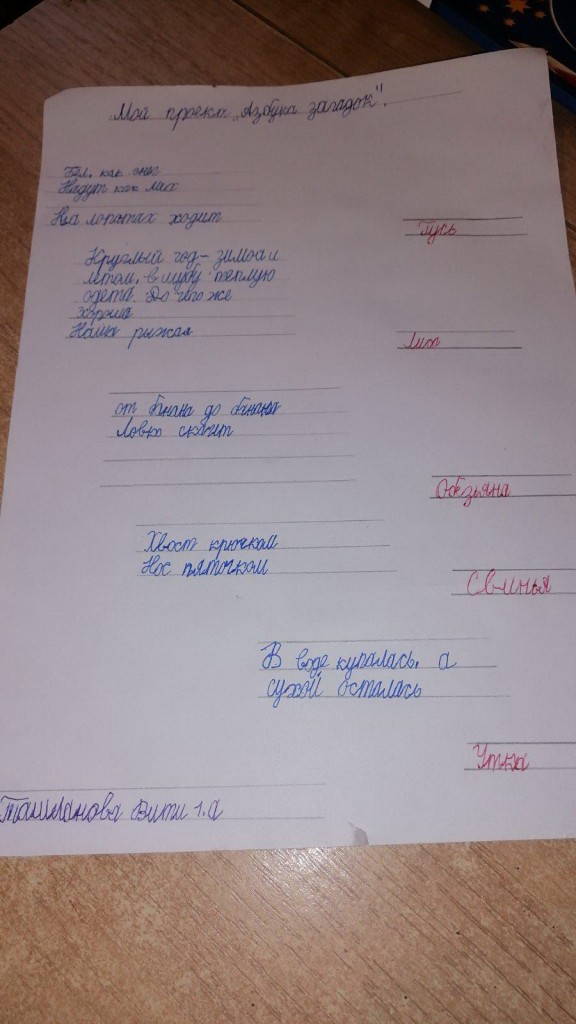 Мой проект „Азбука загадок".
Бел, как снег
Надут как мех
На лопатах ходит
Гусь
Круглый год - зимой и
летом, в шубу теплую
одета. До чего же
хороша
Наша рыжая
Лиса
от банана до банана
Ловко скачит
Обезьяна
Хвост крючком
Нос пяточком
Свинья
В воде купалась, а
сухой осталась
Утка
Вити 1.а